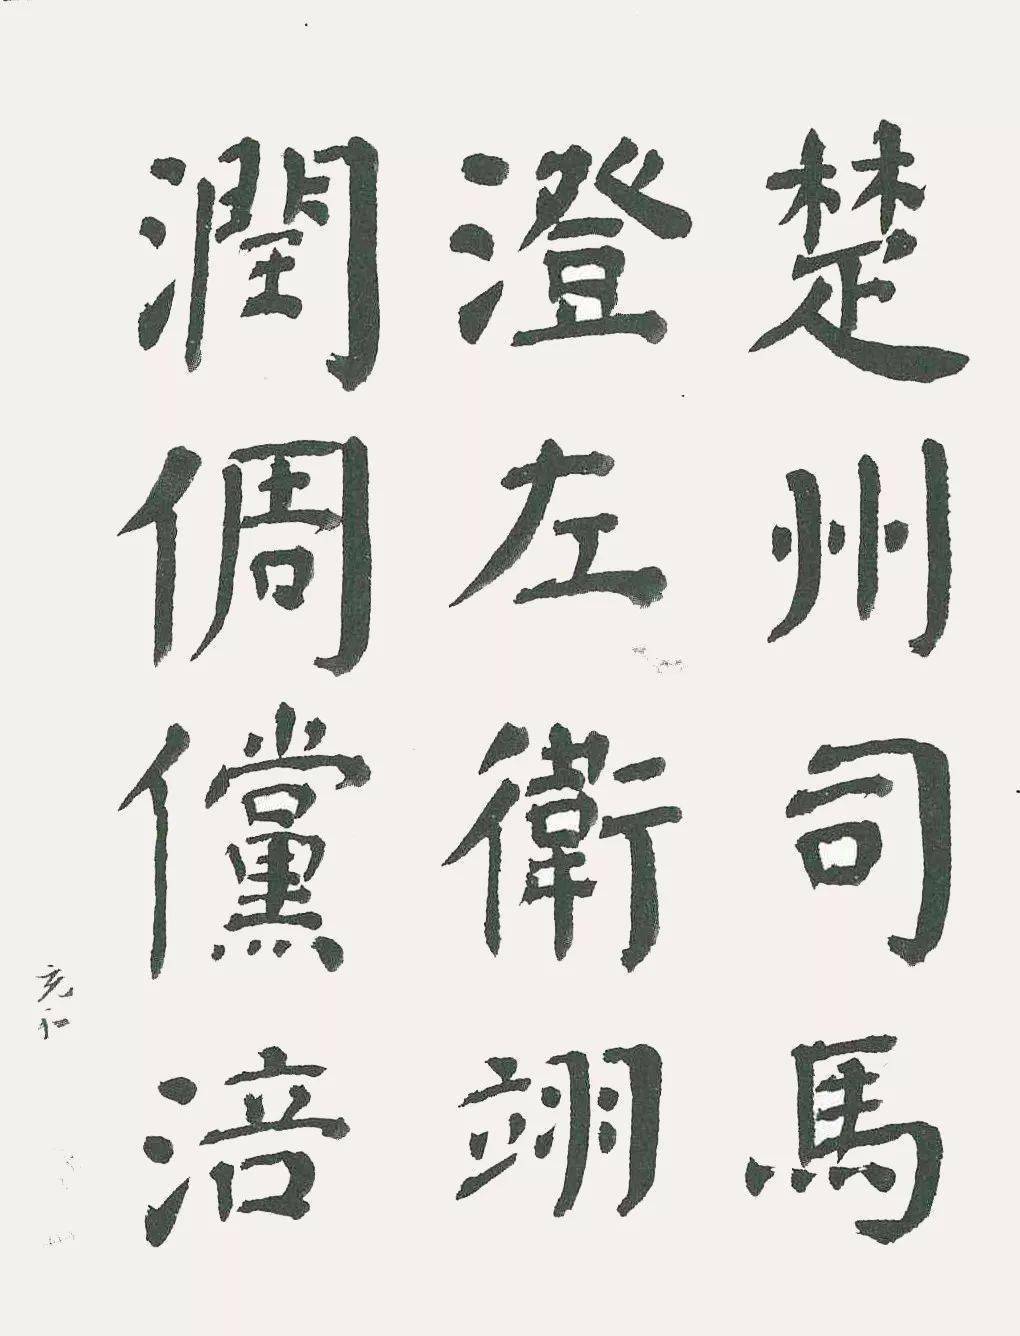 楚州司馬
澄左衛翊
潤倜儻涪
充和